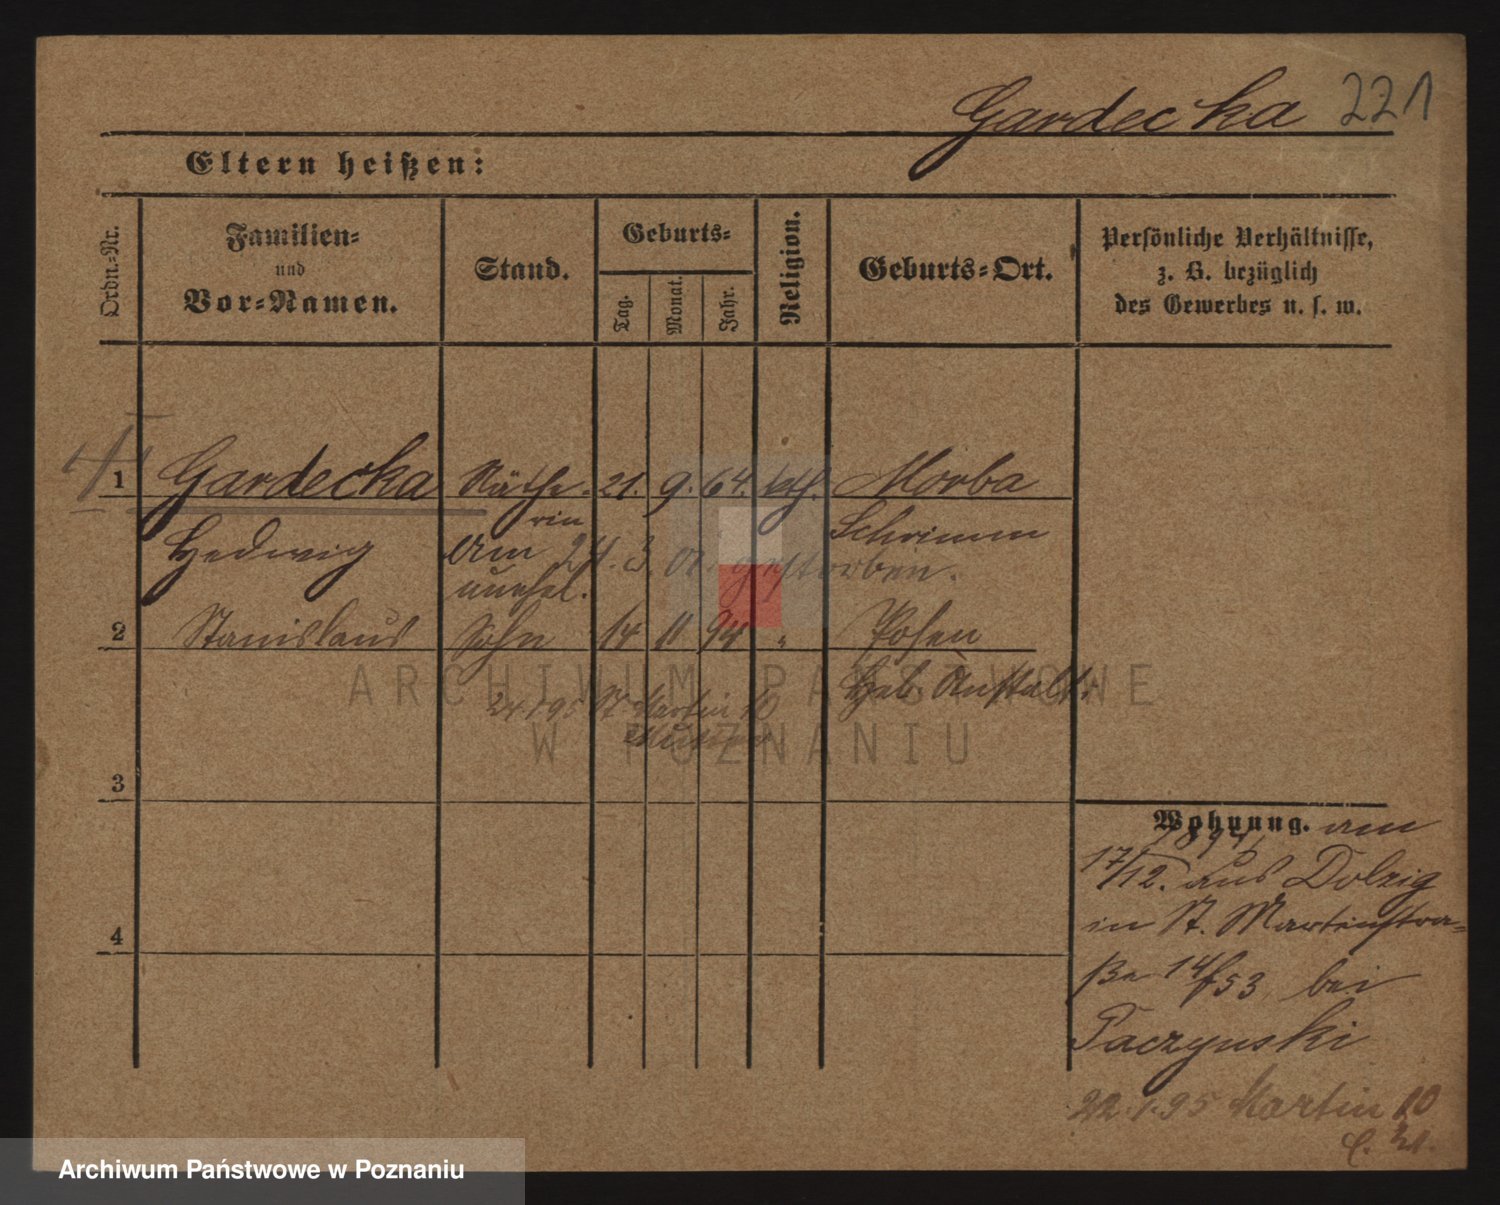 Gardecka 221
Eltern heißen:
Ordn.-Nr.
Familien-
und
Vor-Namen.
Stand.
Geburts-
Tag.
Monat.
Jahr.
Religion.
Geburts-Ort.
Persönliche Verhältnisse,
z. B. bezüglich
des Gewerbes u. s. w.
1 Gardecka Näthe- 21. 9. 64. kth. Morba
rin Schrimm
Hedwig am 24. 3. gestorben.
unehel.
2 Stanislaus Sohn 14 11 94 " Posen
Heb. Anstalt.
24.1.95 St Martin 10
3
4
Wohnung. am
1894
17/12. aus Dolzig
in St. Martinstra-
ße 14/53 bei
Paczynski
22.1.95 Martin 10
ARCHIWUM PAŃSTWOWE
W POZNANIU
Archiwum Państwowe w Poznaniu